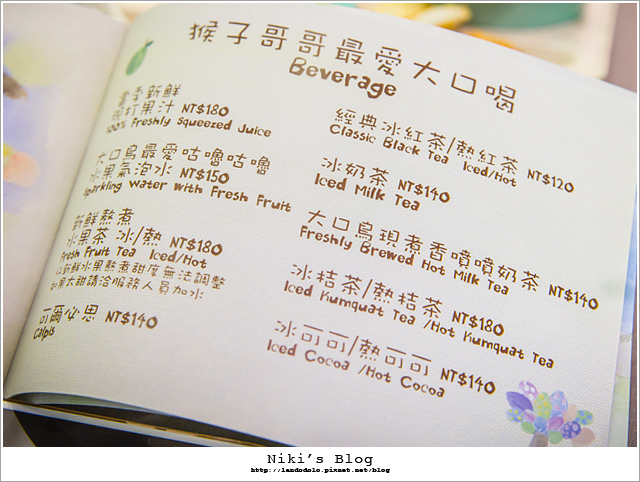 猴子哥哥最愛大口喝
Beverage
當季新鮮
現打果汁 NT$180
100% Freshly Squeezed Juice
大口鳥最愛咕嚕咕嚕
水果氣泡水 NT$150
Sparkling Water with Fresh Fruit
新鮮熬煮
水果茶 冰/熱 NT$180
Fresh Fruit Tea Iced/Hot
以新鮮水果熬煮甜度無法調整
如果太甜請洽服務人員加水
可爾必思 NT$140
Calpis
經典冰紅茶/熱紅茶 NT$120
Classic Black Tea Iced/Hot
冰奶茶 NT$140
Iced Milk Tea
大口鳥現煮香噴噴奶茶 NT$140
Freshly Brewed Hot Milk Tea
冰桔茶/熱桔茶 NT$180
Iced Kumquat Tea /Hot Kumquat Tea
冰可可/熱可可 NT$140
Iced Cocoa /Hot Cocoa
Niki's Blog
http://landodolo.pixnet.net/blog